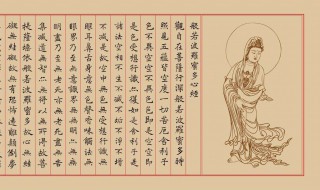 般若波羅蜜多心經
觀自在菩薩行深般若波羅蜜多時
照見五蘊皆空度一切苦厄舍利子
色不異空空不異色色即是空空即
是色受想行識亦復如是舍利子是
諸法空相不生不滅不垢不淨不增
不減是故空中無色無受想行識無
眼耳鼻舌身意無色聲香味觸法無
眼界乃至無意識界無無明亦無無
明盡乃至無老死亦無老死盡無苦
集滅道無智亦無得以無所得故菩
提薩埵依般若波羅蜜多故心無罣
礙無罣礙故無有恐怖遠離顛倒夢